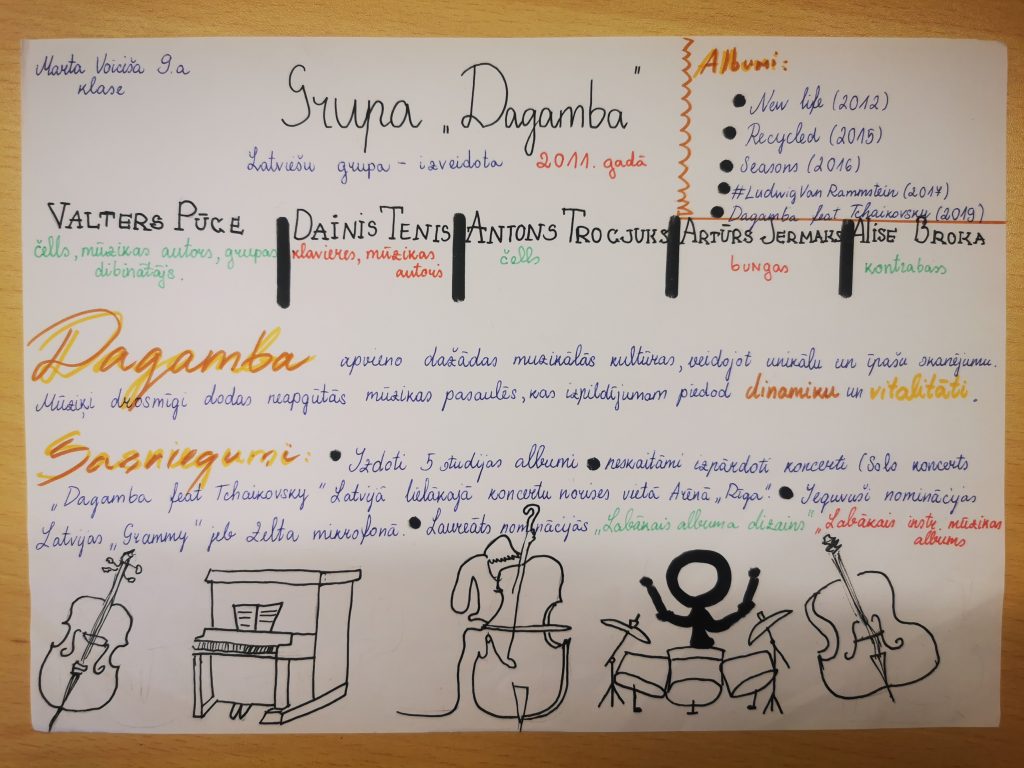 Marta Voiciša 9.a
klase
Grupa „Dagamba"
Latviešu grupa - izveidota 2011. gadā
Albumi:
● New life (2012)
● Recycled (2015)
● Seasons (2016)
● #LudwigVan Rammstein (2017)
● Dagamba feat Tchaikovsky (2019)
VALTERS PŪCE
čells, mūzikas autors, grupas
dibinātājs.
DAINIS TENIS
klavieres, mūzikas
autors
ANTONS TROCJUKS
čells
ARTŪRS JERMAKS
bungas
ALISE BROKA
kontrabass
Dagamba apvieno dažādas muzikālās kultūras, veidojot unikālu un īpašu skanējumu.
Mūziķi drosmīgi dodas neapgūtās mūzikas pasaulēs, kas izpildījumam piedod dinamiku un vitalitāti.
Sasniegumi: ● Izdoti 5 studijas albumi ● neskaitāmi izpārdoti koncerti (Solo koncerts
„Dagamba feat Tchaikovsky" Latvijā lielākajā koncertu norises vietā Arēnā „Rīga". ● Ieguvuši nominācijas
Latvijas „Grammy" jeb Zelta mikrofonā. ● Laureāts nominācijās „Labākais albuma dizains" „Labākais instr. mūzikas
albums